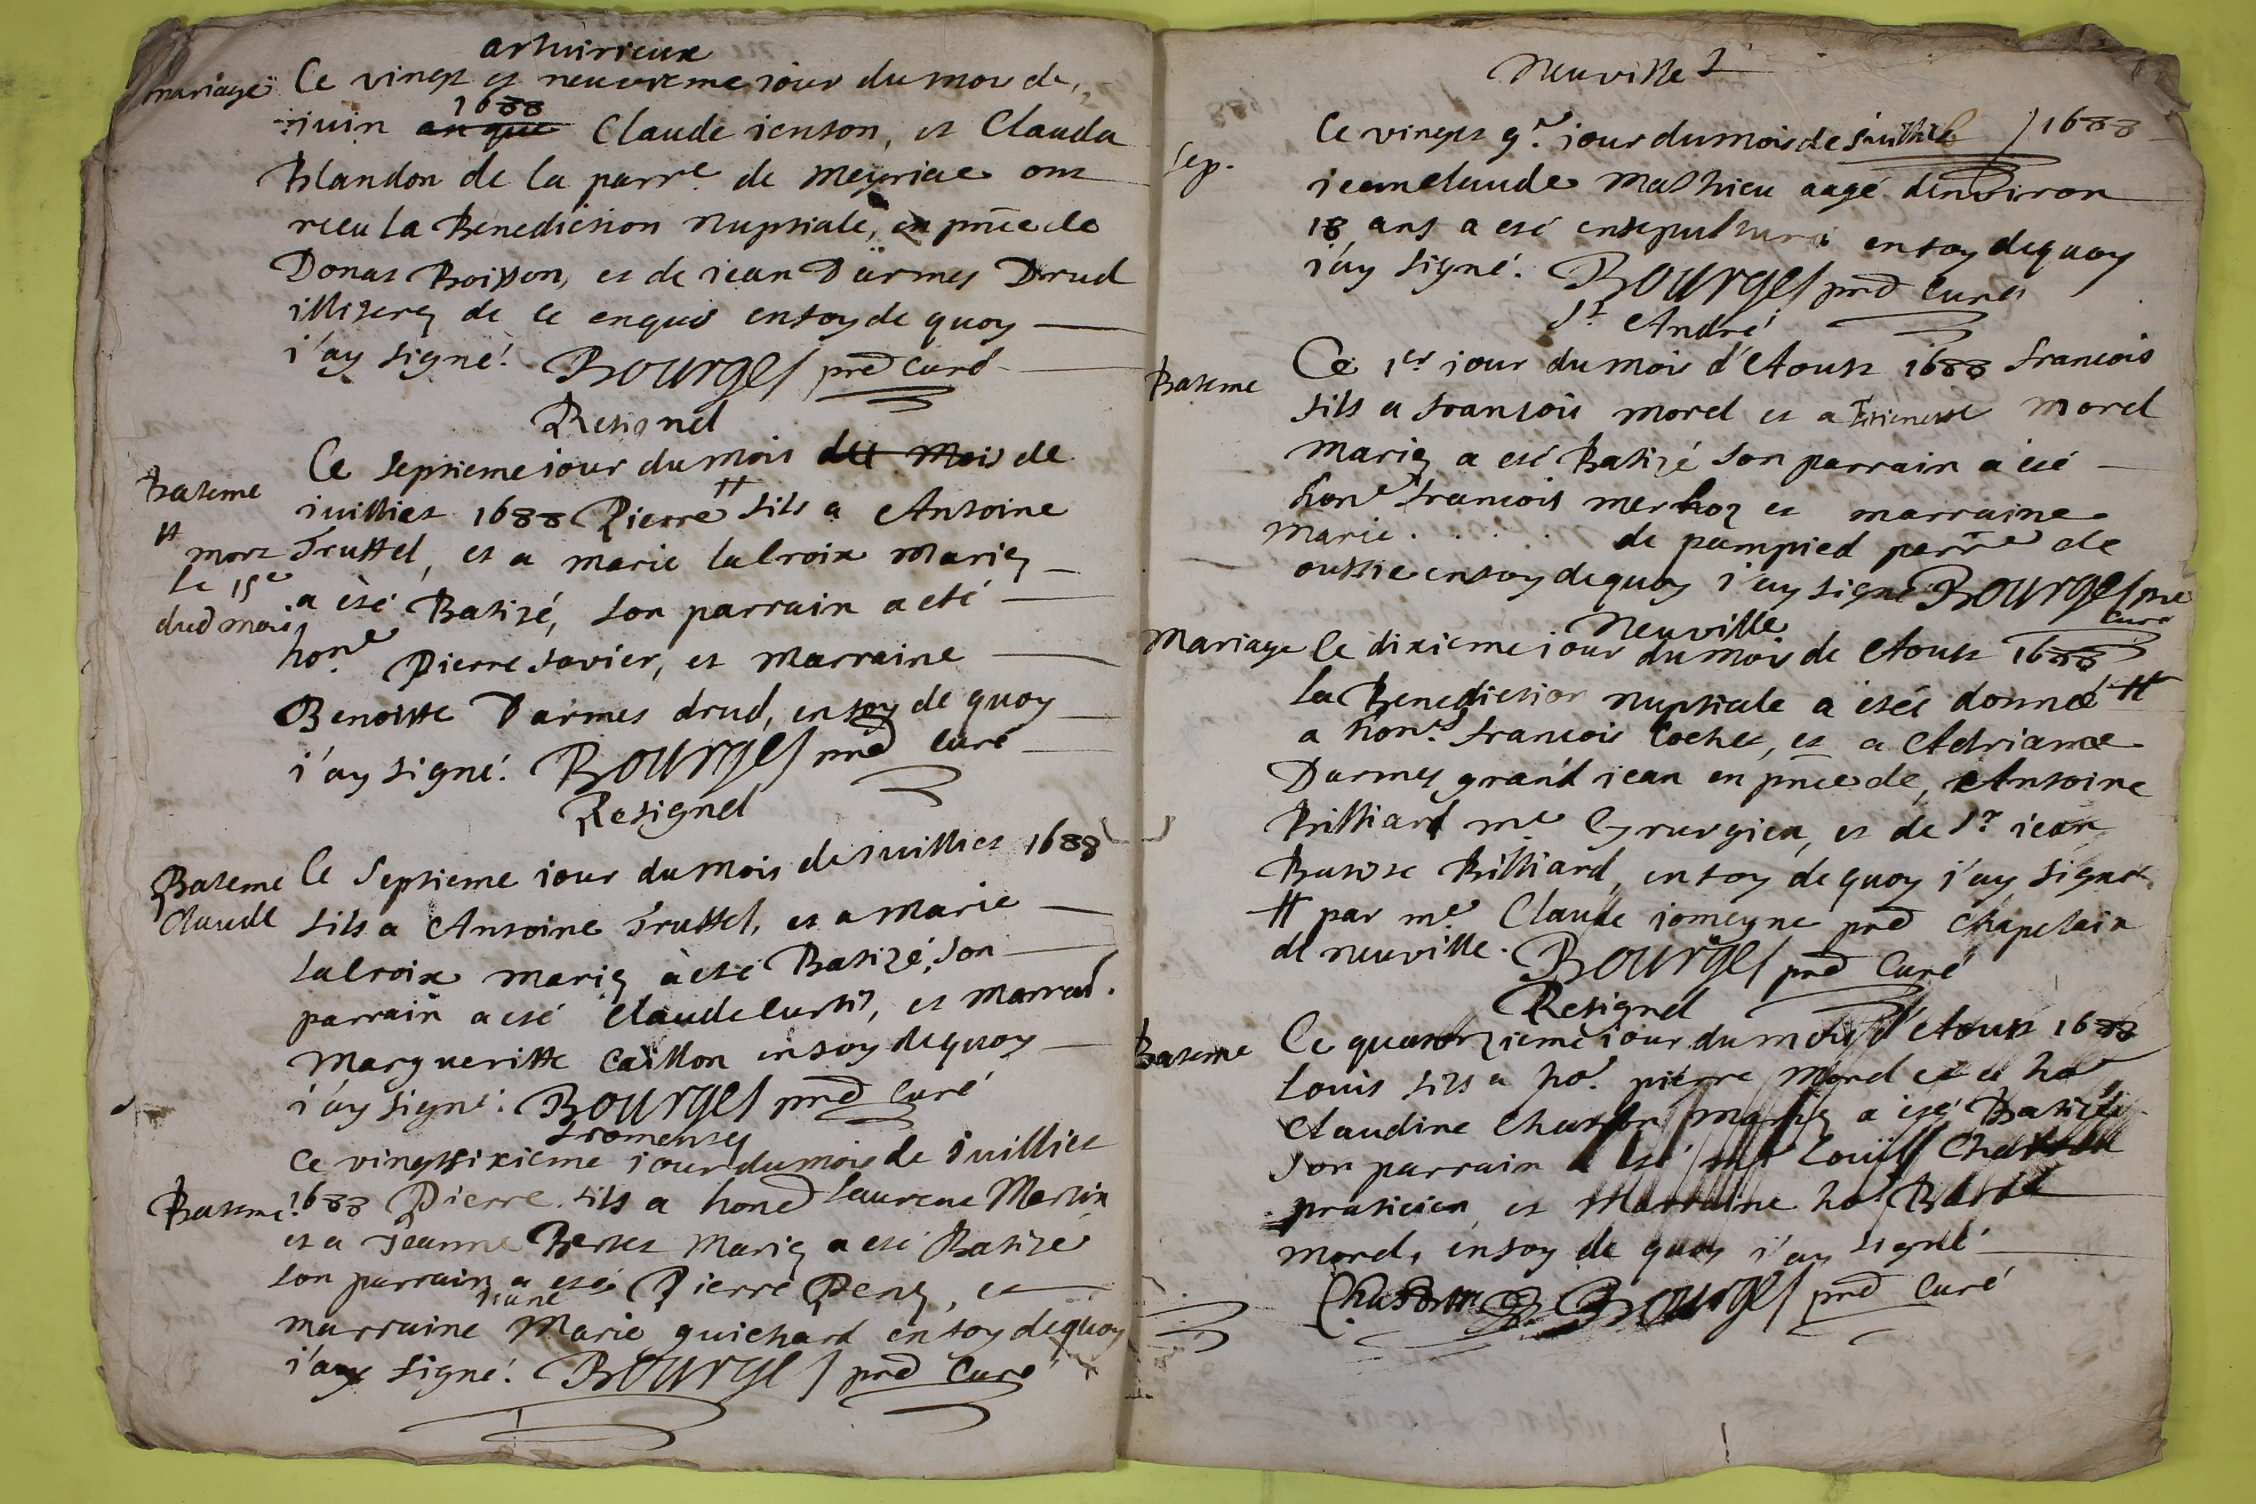 artuirieux
mariage Ce vingt et neuvieme jour du moi de
juin an que 1688 Claude ienton, et Clauda
Blandon de la parre de meyriae ont
receu la Benediction Nuptiale, en pnce de
Donat Boisson, et de iean Darmes Drud
illiterez de ce enquis en foy de quoy
j'ay signé. Bourges prê Curé
Resignel
Ce septieme iour du mois du mois de
Bateme juilliet 1688 Pierre # fils a Antoine
# mort le 15e dud mois
Truffel, et a marie lalroix Mariez
a eté Batizé, son parrain a eté
honê Pierre favier, et Marraine
Benoitte Darmes drud, en foy de quoy
j'ay signé. Bourges prê Curé
Resignel
Bateme Ce septieme iour du mois de juilliet 1688
Claude fils a Antoine Truffel, et a marie
lalroix mariez a eté Batizé, son
parrain a eté Claude Curtis, et marrai.
Margueritte Caillon en foy de quoy
j'ay signé. Bourges prê Curé
fromentes
Ce vingtsixieme iour du mois de juilliet
Bateme. 1688 Pierre fils a honê laurent Merlin
et a Jeanne Bertet Mariez a eté Batizé
son parrain a eté Pierre Penz, et
marraine Marie guichard en foy de quoy
j'ay signé. Bourges prê Curé
Neuville
Sep. Ce vingt 9e jour du mois de juilliet 1688
jeanclaude Mathieu aagé denviron
18 ans a eté ensepulturé en foy de quoy
j'ay signé. Bourges prê Curé
St André
Bateme Ce 1er jour du mois d'Aoust 1688 francois
fils a francois morel et a Etiennette morel
mariez a eté Batizé son parrain a eté
honê francois merhoz et marraine
marie . . . . . de pampied parre de
outrie en foy de quoy j'ay signé Bourges pre
Curé
Neuville
Mariage le dixieme iour du mois de Aoust 1688
la Benediction nuptiale a etée donnée #
a honê francois Cochet, et a Adrianne
Darmes grand iean en pnce de Antoine
Brilliard me Cyrurgien, et de Sr iean
Batiste Billiard, en foy de quoy j'ay signé
# par me Claude iomeyne prê Chapelain
de neuville. Bourges prê Curé
Resignel
Bateme Ce quatorzieme iour du mois d'Aoust 1688
Louis fils a ho. pierre Morel et a ho
Claudine Chaston mariez a eté Batizé
son parrain a eté me Louis Chaston
praticien et Marraine ho
morel, en foy de quoy j'ay signé
Chaston Bourges prê Curé